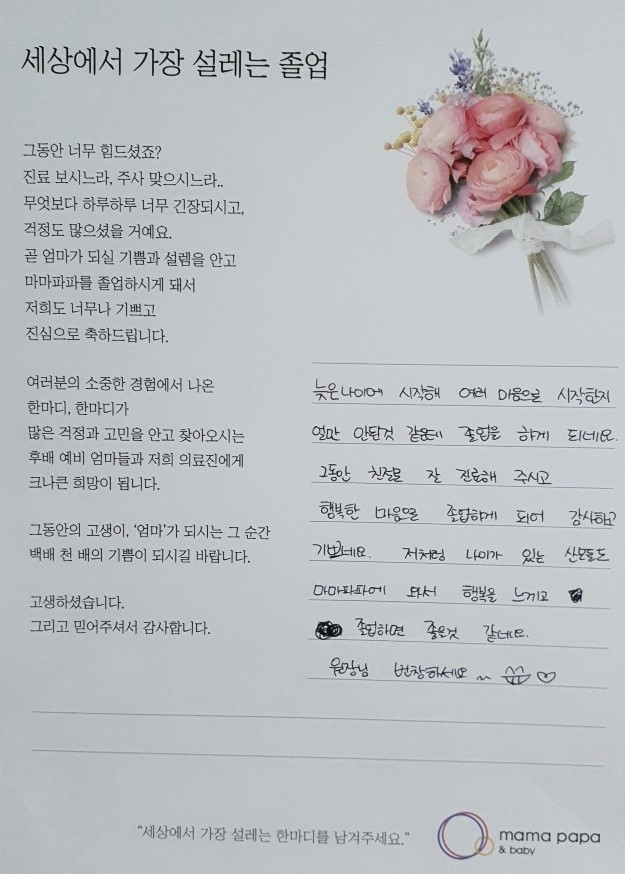 세상에서 가장 설레는 졸업
그동안 너무 힘드셨죠?
진료 보시느라, 주사 맞으시느라..
무엇보다 하루하루 너무 긴장되시고,
걱정도 많으셨을 거예요.
곧 엄마가 되실 기쁨과 설렘을 안고
마마파파를 졸업하시게 돼서
저희도 너무나 기쁘고
진심으로 축하드립니다.
여러분의 소중한 경험에서 나온
한마디, 한마디가
많은 걱정과 고민을 안고 찾아오시는
후배 예비 엄마들과 저희 의료진에게
크나큰 희망이 됩니다.
그동안의 고생이, '엄마'가 되시는 그 순간
백배 천 배의 기쁨이 되시길 바랍니다.
고생하셨습니다.
그리고 믿어주셔서 감사합니다.
늦은나이에 시작해 여러 마음으로 시작한지
얼만 안된것 같은데 졸업을 하게 되네요.
그동안 친절로 잘 진료해 주시고
행복한 마음으로 졸업하게 되어 감사하고
기쁘네요. 저처럼 나이가 있는 산모들도
마마파파에 와서 행복을 느끼고
졸업하면 좋을것 같네요.
원장님 번창하세요 ~ ♡
"세상에서 가장 설레는 한마디를 남겨주세요."
mama papa
& baby